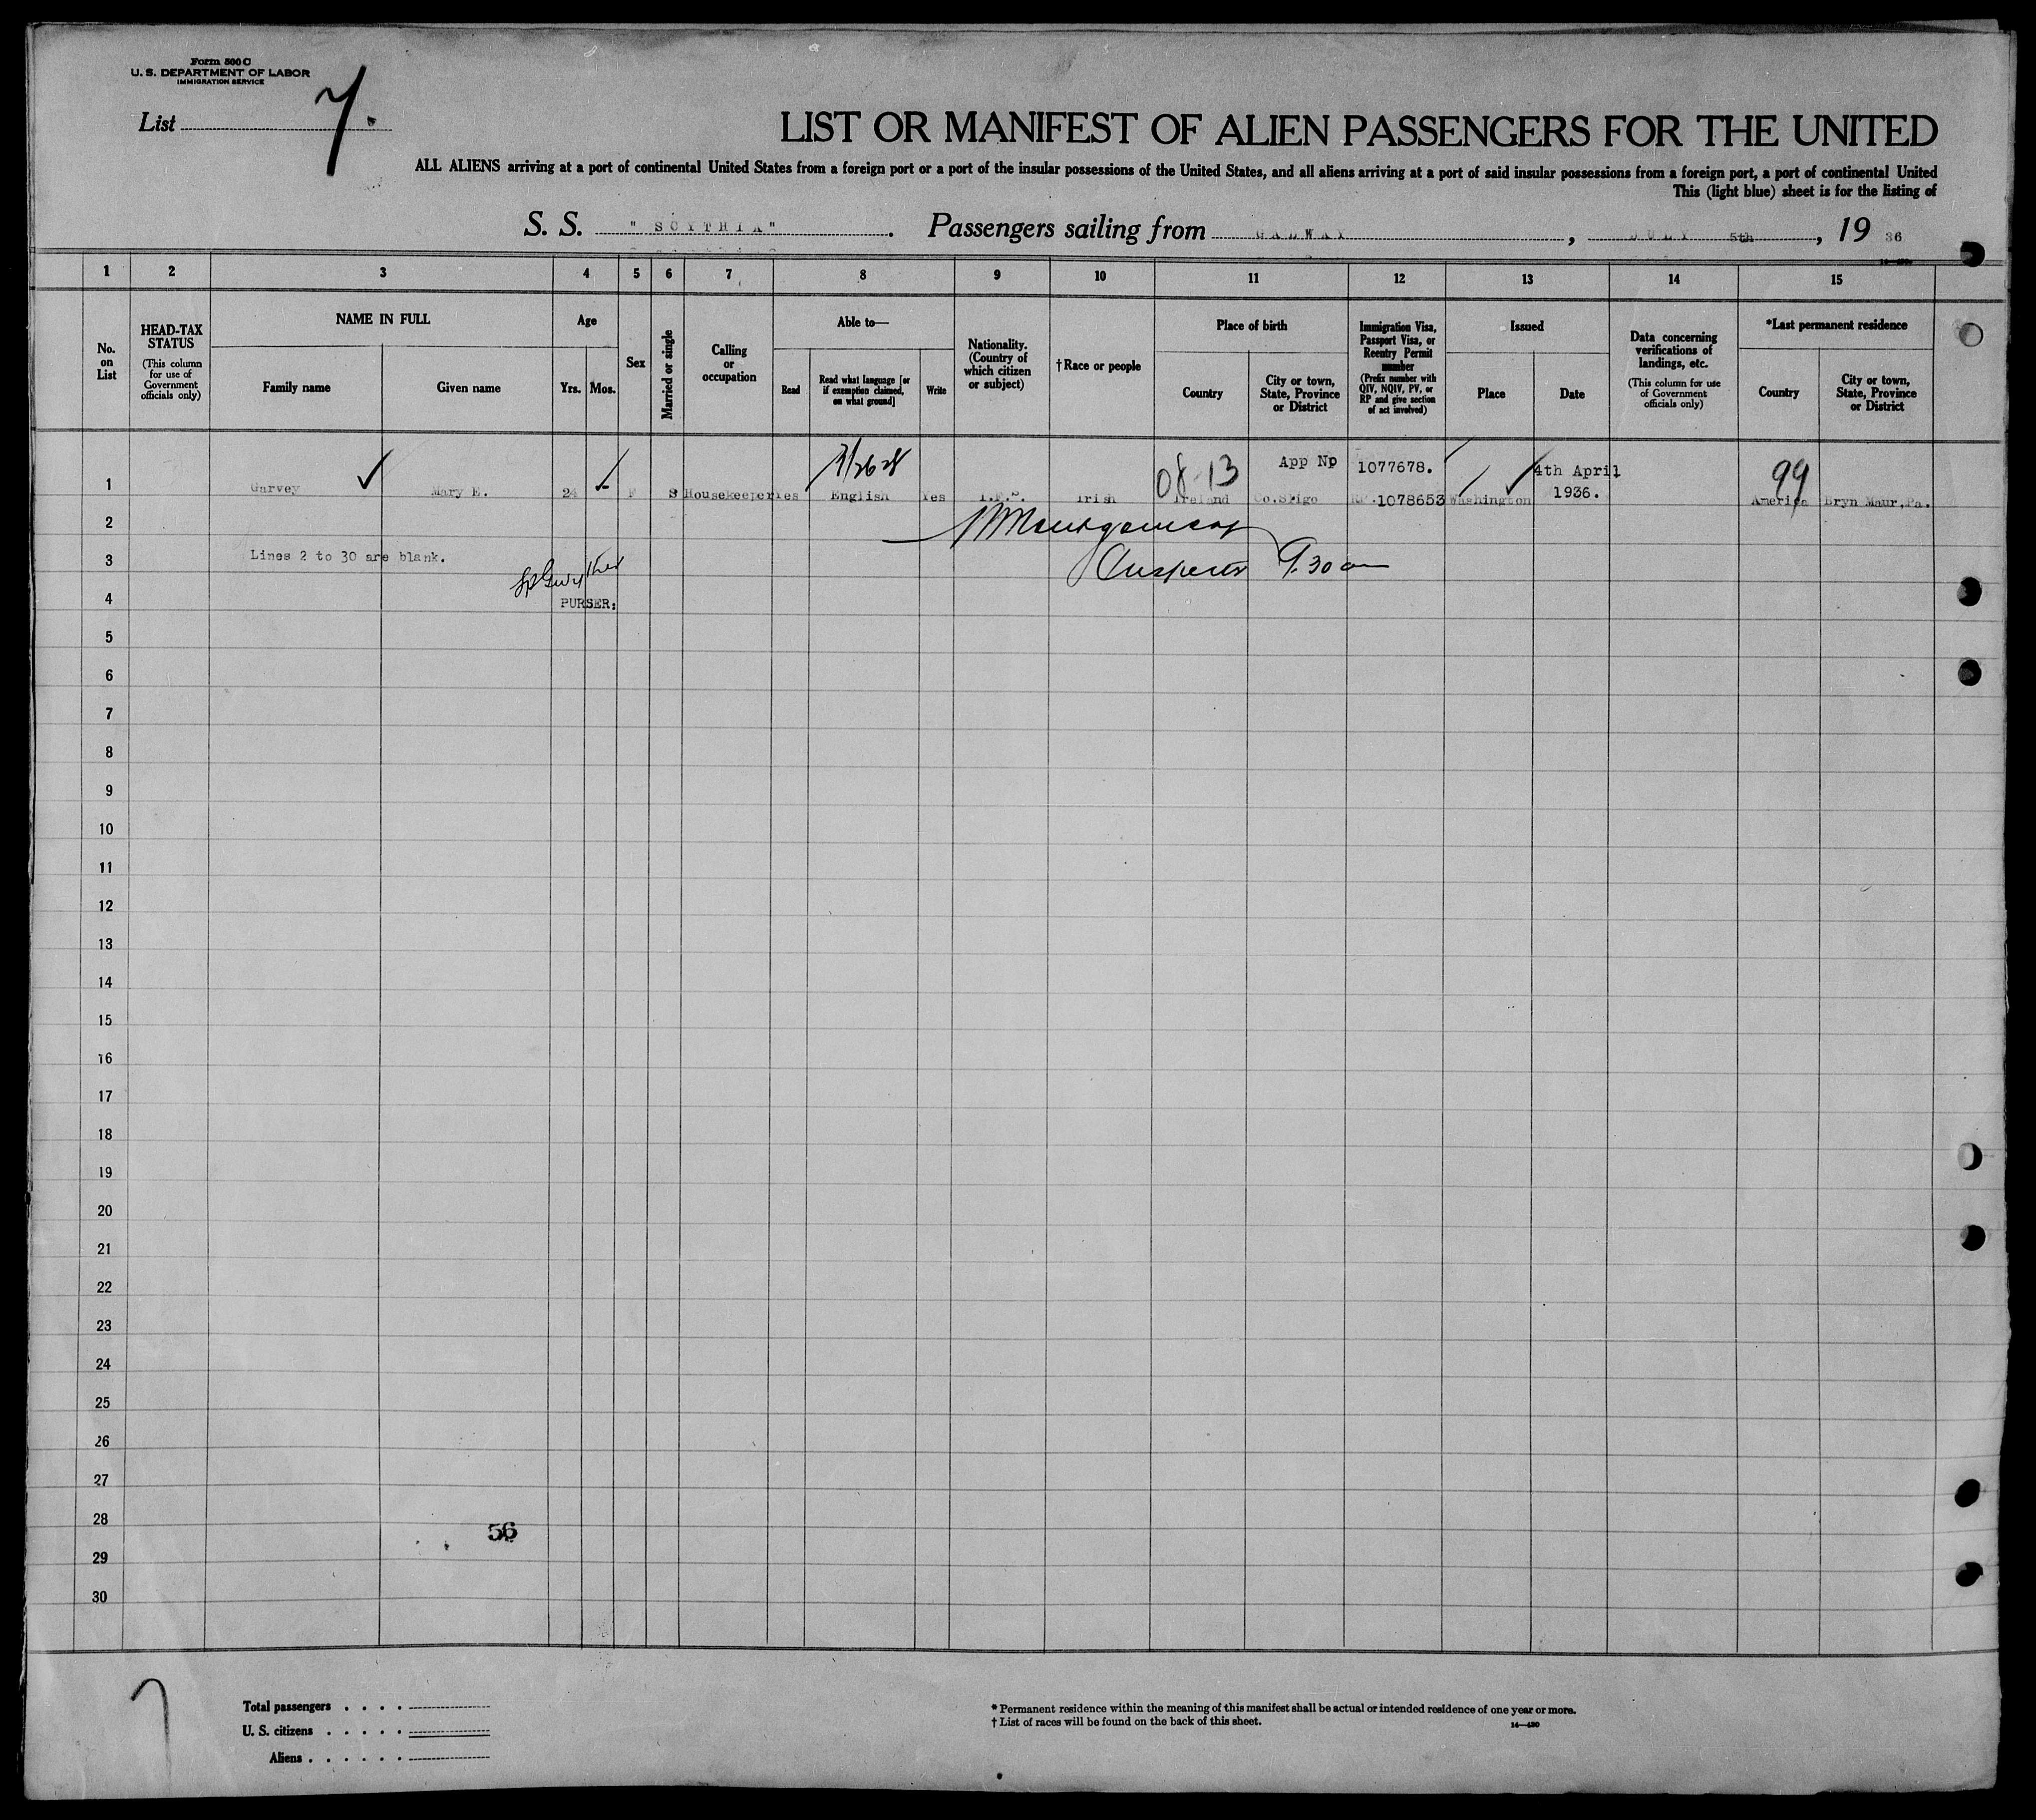 Form 500 C
U. S. DEPARTMENT OF LABOR
IMMIGRATION SERVICE
List 7.
LIST OR MANIFEST OF ALIEN PASSENGERS FOR THE UNITED
ALL ALIENS arriving at a port of continental United States from a foreign port or a port of the insular possessions of the United States, and all aliens arriving at a port of said insular possessions from a foreign port, a port of continental United
This (light blue) sheet is for the listing of
S. S. "SCYTHIA". Passengers sailing from GALWAY, JULY 5th, 19 36
1 2 3 4 5 6 7 8 9 10 11 12 13 14 15
No. on List
HEAD-TAX STATUS
(This column for use of Government officials only)
NAME IN FULL
Family name
Given name
Age
Yrs. Mos.
Sex
Married or single
Calling or occupation
Able to—
Read
Read what language [or if exemption claimed, on what ground]
Write
Nationality. (Country of which citizen or subject)
†Race or people
Place of birth
Country
City or town, State, Province or District
Immigration Visa, Passport Visa, or Reentry Permit number
(Prefix number with QIV, NQIV, PV, or RP and give section of act involved)
Issued
Place
Date
Data concerning verifications of landings, etc.
(This column for use of Government officials only)
*Last permanent residence
Country
City or town, State, Province or District
08-13 App No 1077678. 4th April 99
1 Garvey Mary E. 24 - F S Housekeeper Yes English Yes I.F.S. Irish Ireland Co.Sligo RP 1078653 Washington 1936. America Bryn Maur, Pa.
2 Montgomery
3 Lines 2 to 30 are blank. 9.30 am
4 PURSER:
5
6
7
8
9
10
11
12
13
14
15
16
17
18
19
20
21
22
23
24
25
26
27
28 56
29
30
7
Total passengers . . . .
U. S. citizens . . . . .
Aliens . . . . . .
* Permanent residence within the meaning of this manifest shall be actual or intended residence of one year or more.
† List of races will be found on the back of this sheet.
14—430